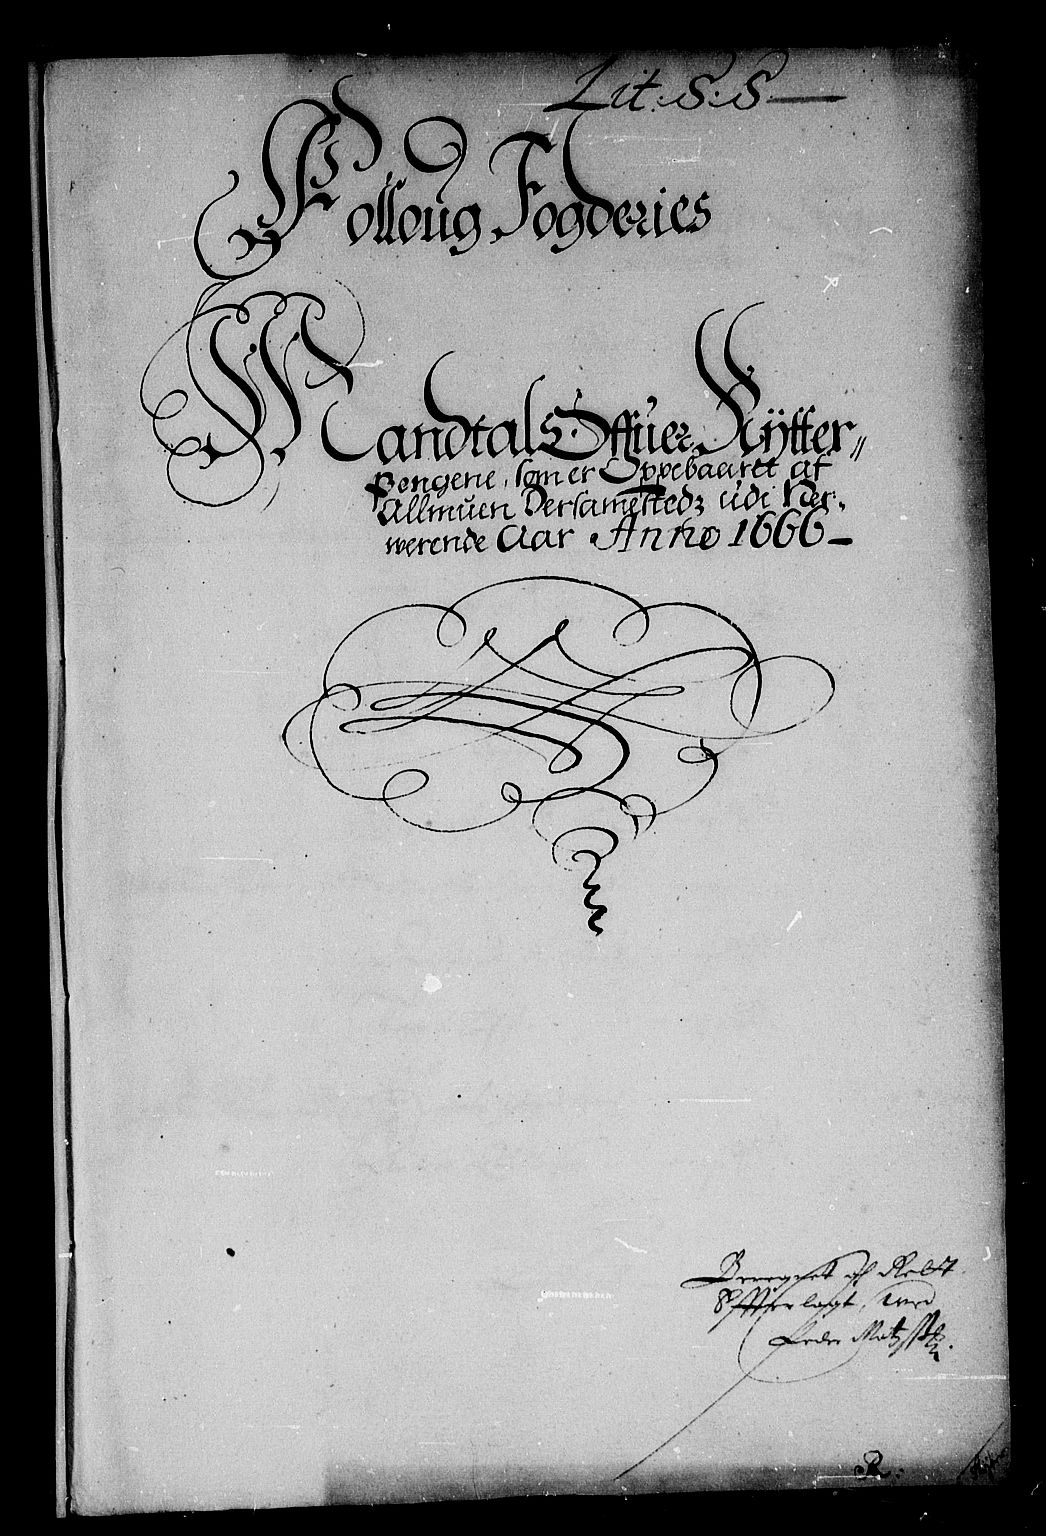 Lit: S: S
Folloug Fogderies
Mandtals Offuer Rÿtter„
Pengene, som er Oppebaarett af
Allmuen Dersamesteds udi Her:
werende Aar Anno 1666
af
lagt, wed
Peder